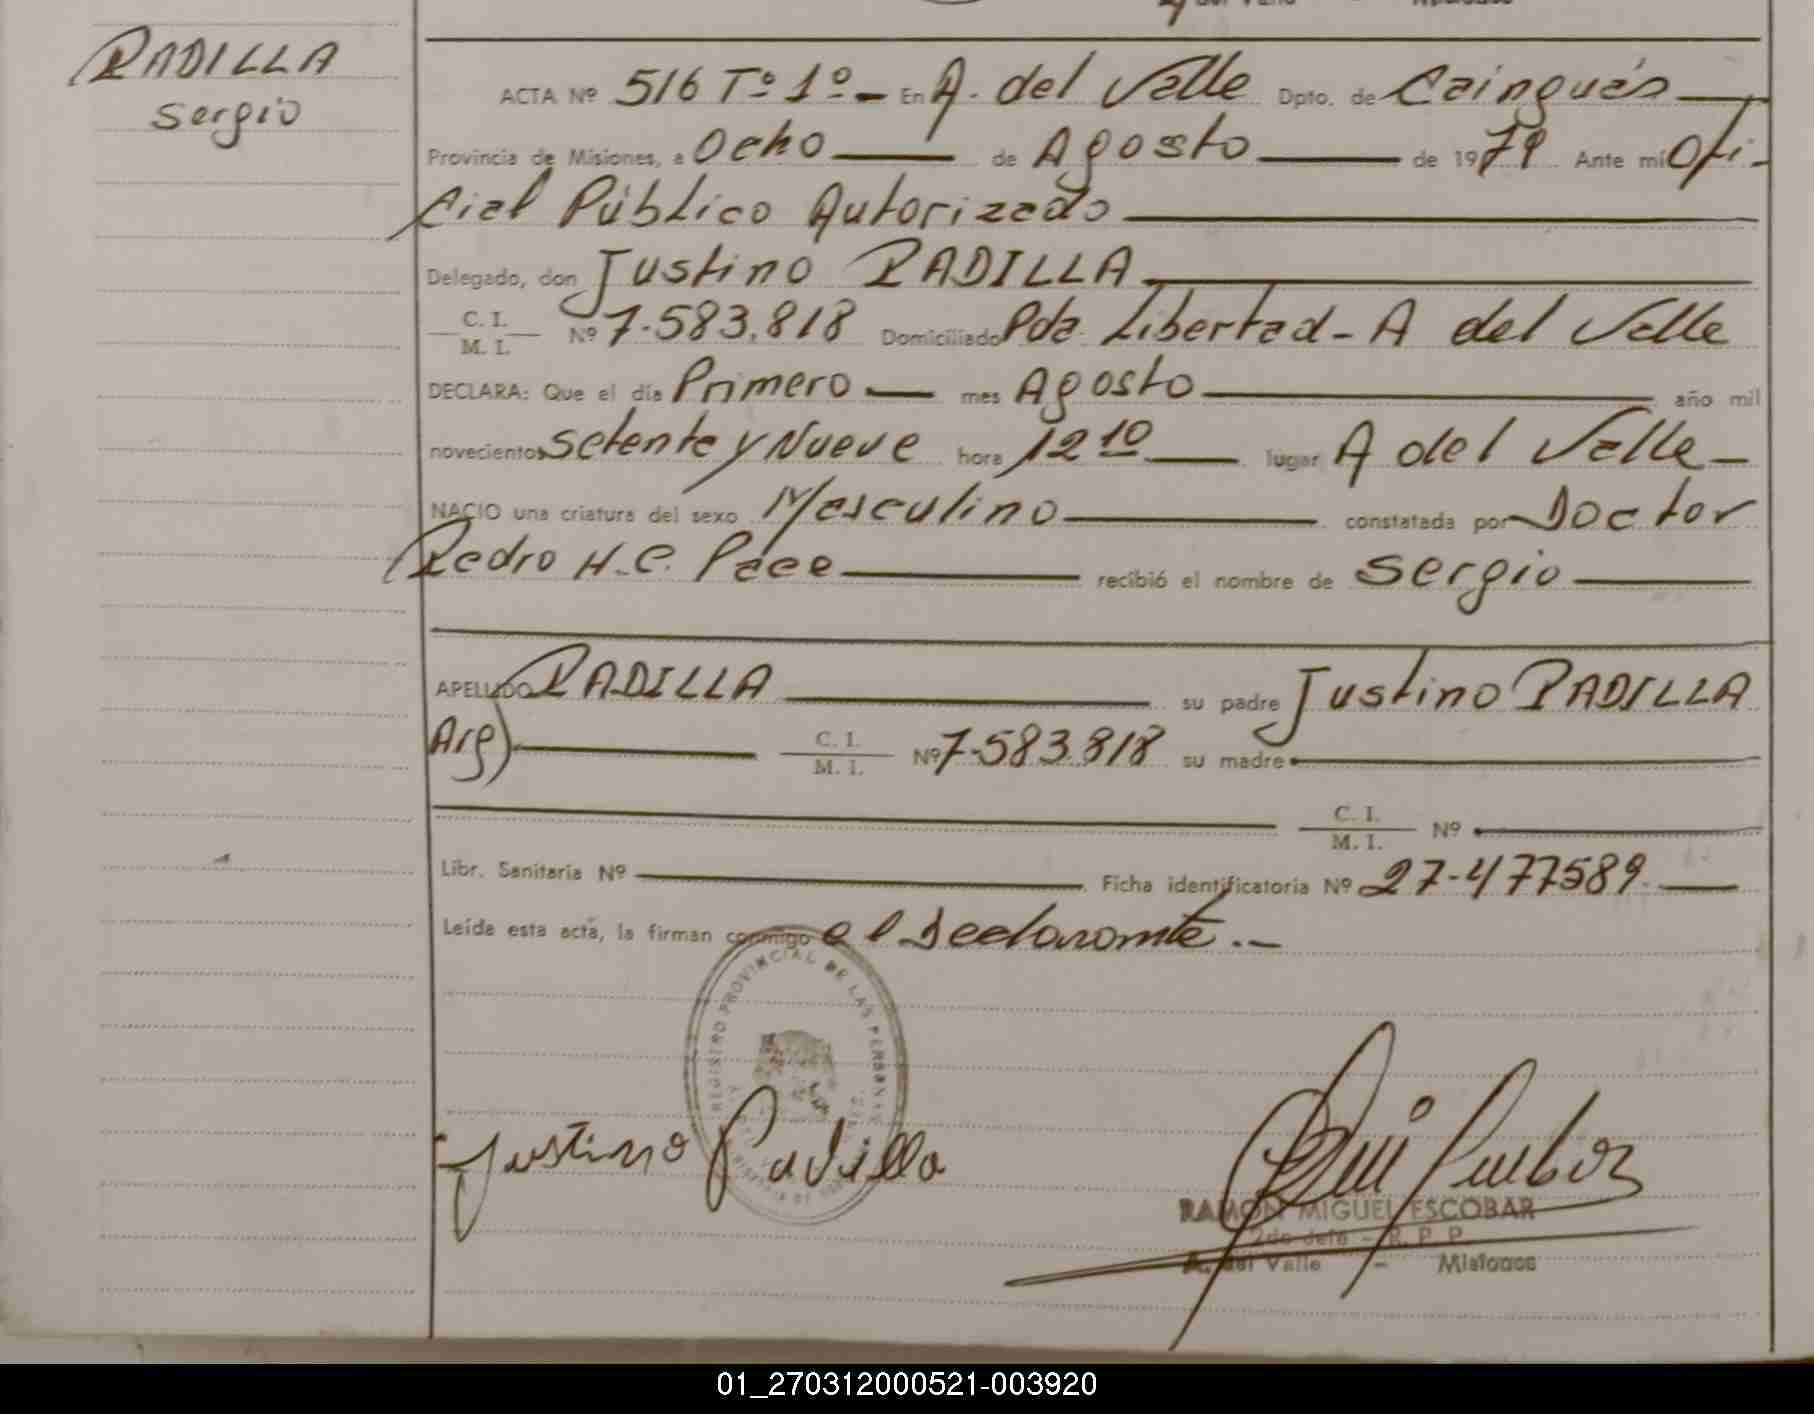 PADILLA
Sergio
ACTA Nº 516 Tº 1º - En A. del Valle Dpto. de Cainguás
Provincia de Misiones, a Ocho de Agosto de 1979 Ante mí Ofi-
cial Público Autorizado
Delegado, don Justino PADILLA
C. I.
M. I. Nº 7-583.818 Domiciliado Pda. Libertad - A del Valle
DECLARA: Que el día Primero mes Agosto año mil
novecientos Setenta y Nueve hora 12 10 lugar A del Valle -
NACIO una criatura del sexo Masculino constatada por Doctor
Pedro H.C. recibió el nombre de Sergio
APELLIDO PADILLA su padre Justino PADILLA
Arg) C. I.
M. I. Nº 7-583.818 su madre
C. I.
M. I. Nº
Libr. Sanitaria Nº Ficha identificatoria Nº 27-477589.
Leída esta acta, la firman conmigo el Declarante.-
REGISTRO PROVINCIAL DE LAS PERSONAS
Justino Padilla
RAMON MIGUEL ESCOBAR
2do Jefe - R. P. P.
A. del Valle - Misiones
01_270312000521-003920